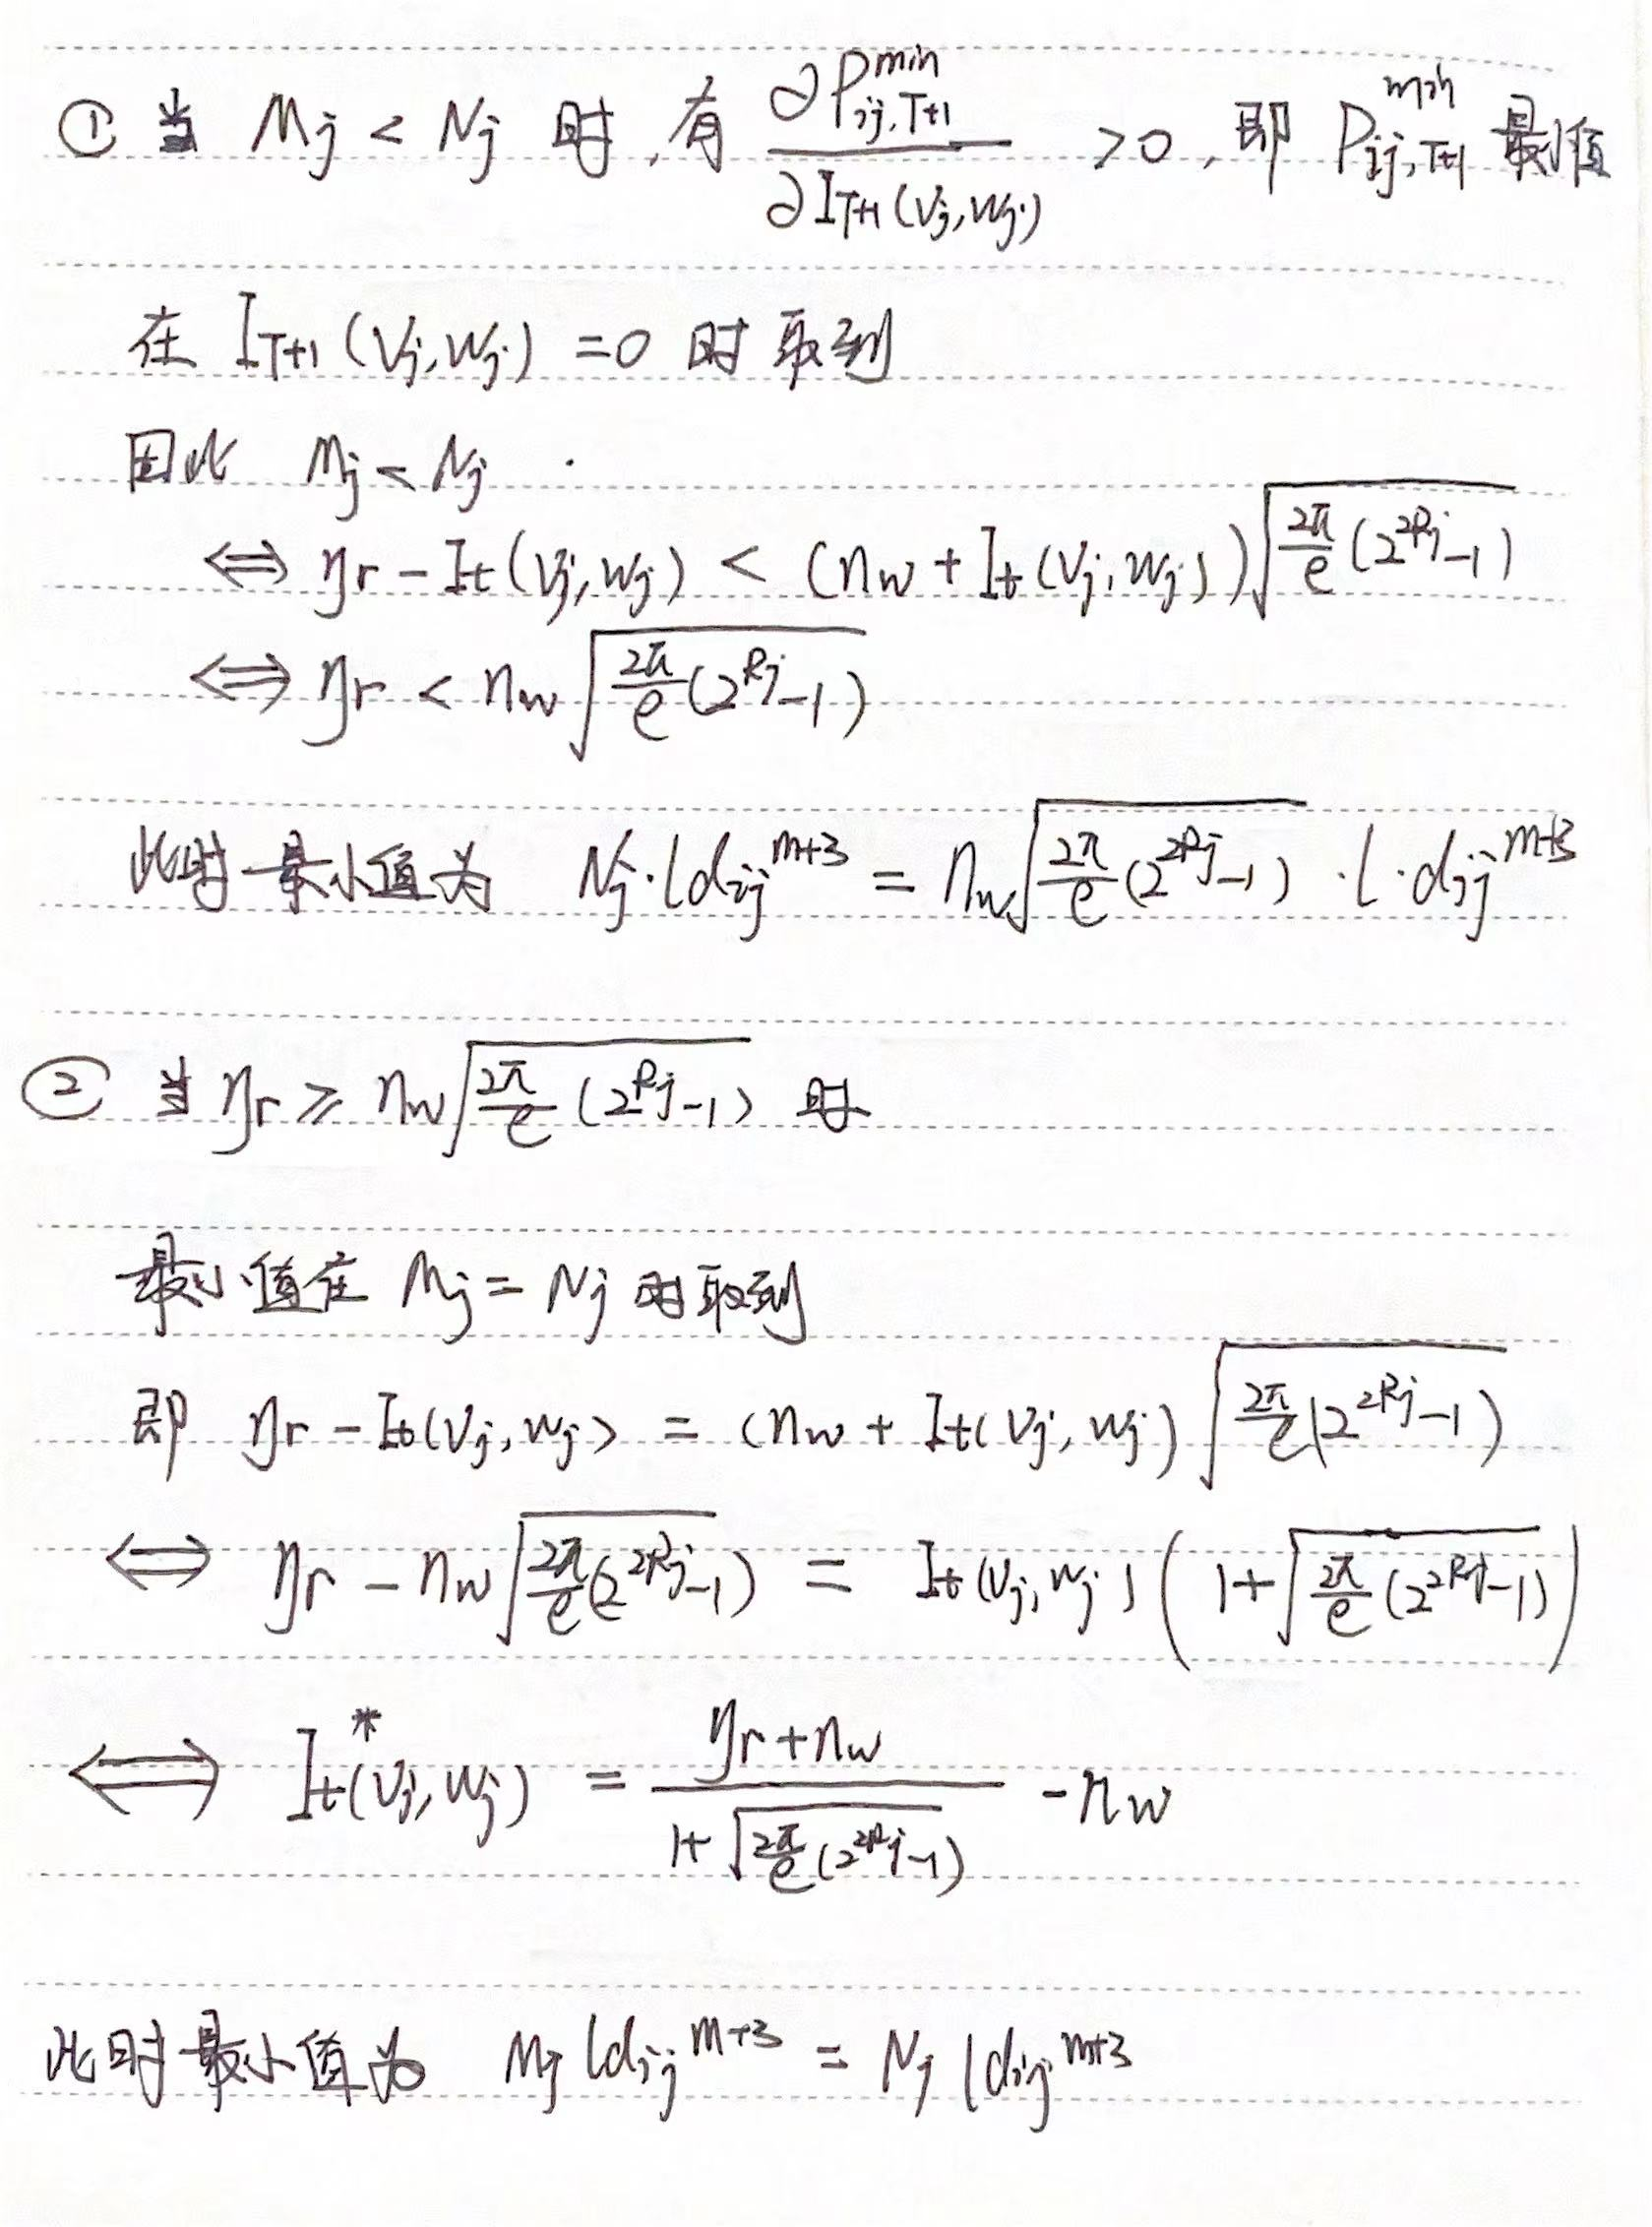 ① 当 Mj < Nj 时,有 ∂P^{min}_{ij,T+1} / ∂I_{T+1}(Vj,Wj) >0,即 P^{min}_{ij,T+1} 最小值
在 I_{T+1}(Vj,Wj) =0 时取到
因此 Mj < Nj
⟺ ηr − It(Vj,Wj) < (nw + It(Vj,Wj))√(2π/e (2^{2Rj}−1))
⟺ ηr < nw√(2π/e (2^{Rj}−1))
此时最小值为 Nj·l dij^{m+3} = nw√(2π/e (2^{2Rj}−1)) ·l·dij^{m+3}
② 当 ηr ≥ nw√(2π/e (2^{Rj}−1)) 时
最小值在 Mj = Nj 时取到
即 ηr − It(Vj,Wj) = (nw + It(Vj,Wj))√(2π/e (2^{2Rj}−1))
⟺ ηr − nw√(2π/e (2^{2Rj}−1)) = It(Vj,Wj)(1+√(2π/e (2^{2Rj}−1)))
⟺ It*(Vj,Wj) = (ηr+nw) / (1+√(2π/e (2^{2Rj}−1))) −nw
此时最小值为 Mj l dij^{m+3} = Nj l dij^{m+3}